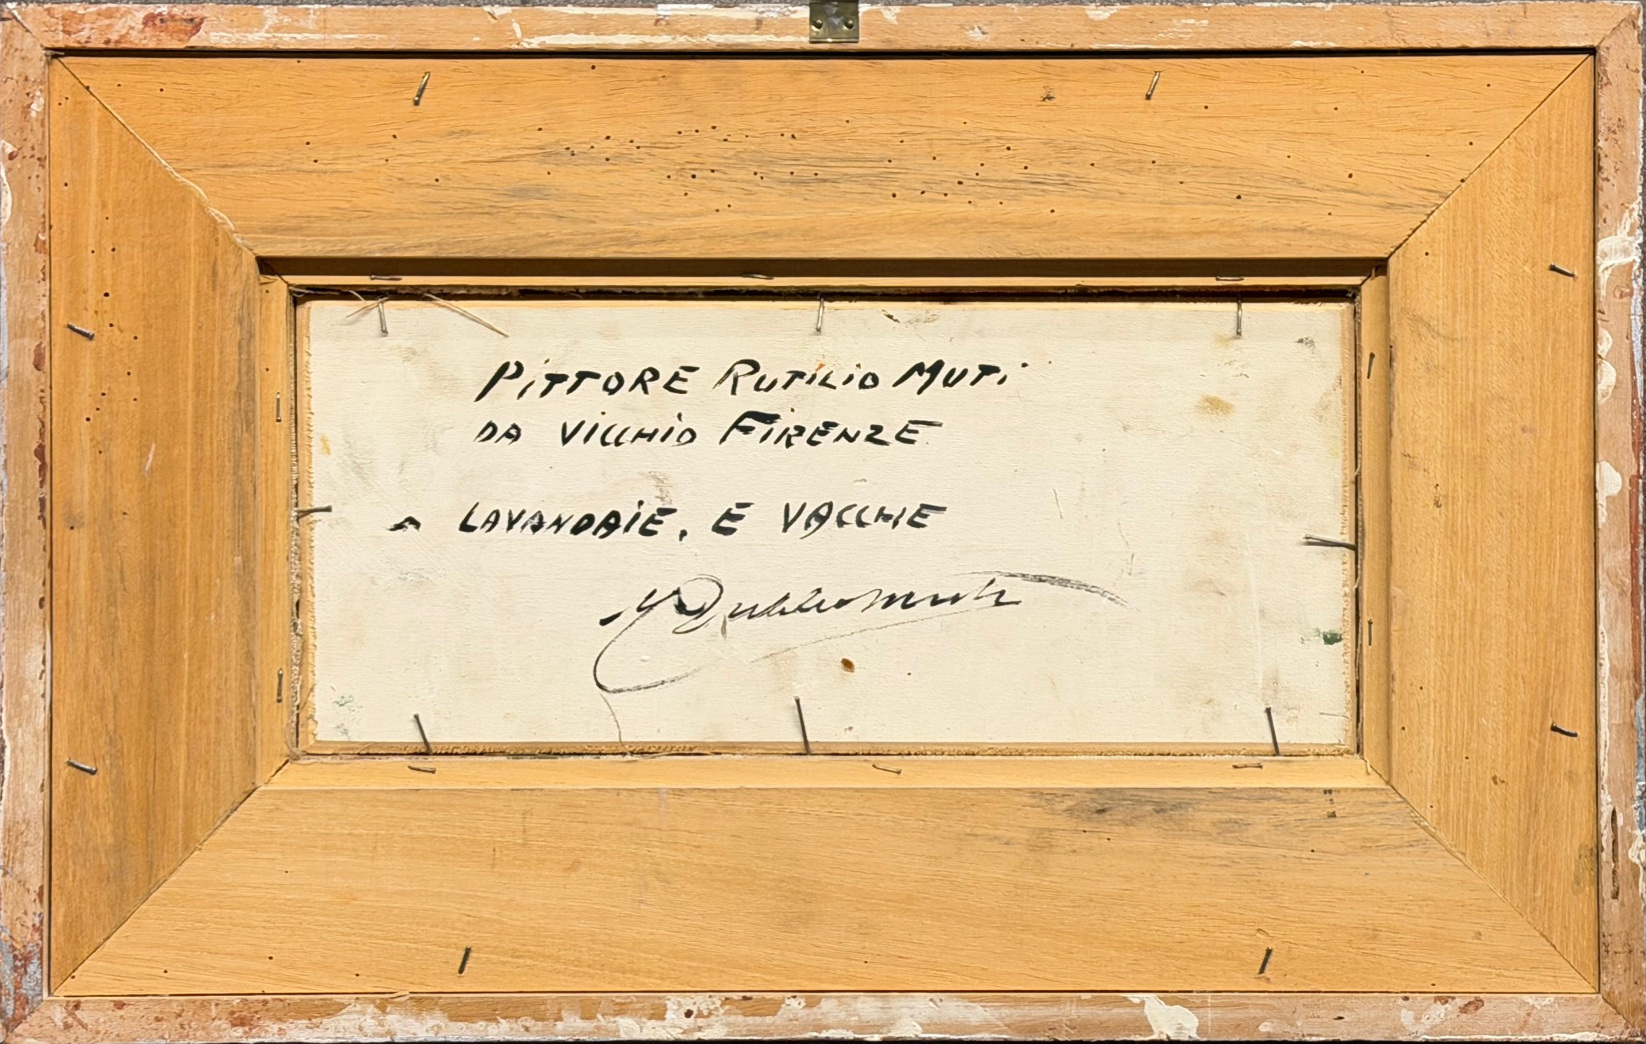 PITTORE RUTILIO MUTI
DA VICCHIO FIRENZE
LAVANDAIE, E VACCHE
Rutilio Muti